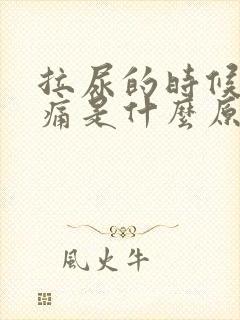 拉尿的時候
痛是什麼原
風火牛